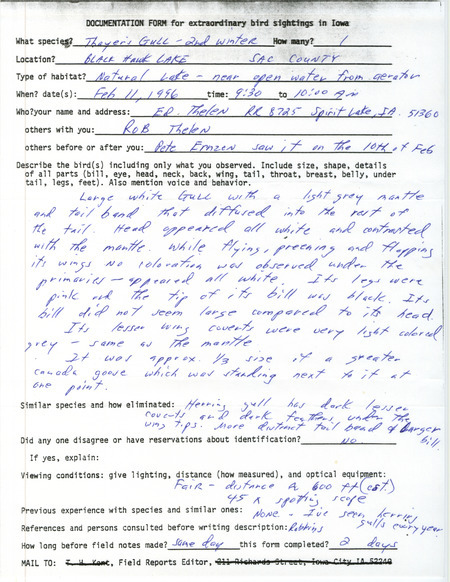 DOCUMENTATION FORM for extraordinary bird sightings in Iowa
What species? Thayer's Gull - 2nd winter How many? 1
Location? BLACK Hawk LAKE SAC COUNTY
Type of habitat? Natural Lake - near open water from aerator
When? date(s): Feb 11, 1996 time: 9:30 to 10:00 Am
Who?your name and address: ED. Thelen RR 8725 Spirit Lake, IA. 51360
others with you: ROB Thelen
others before or after you: Pete Ernzen saw it on the 10th of Feb
Describe the bird(s) including only what you observed. Include size, shape, details
of all parts (bill, eye, head, neck, back, wing, tail, throat, breast, belly, under
tail, legs, feet). Also mention voice and behavior.
Large white Gull with a light grey mantle
and tail band that diffused into the rest of
the tail. Head appeared all white and contrasted
with the mantle. While flying, preening and flapping
its wings no coloration was observed under the
primaries - appeared all white. Its legs were
pink and the tip of its bill was black. Its
bill did not seem large compared to its head.
Its lesser wing coverts were very light colored
grey - same as the mantle.
It was approx. 1/3 size of a greater
canada goose which was standing next to it at
one point.
Similar species and how eliminated: Herring gull has dark lesser
coverts and dark feathers under the
wing tips. More distinct tail band & larger
Did any one disagree or have reservations about identification? NO bill.
If yes, explain:
Viewing conditions: give lighting, distance (how measured), and optical equipment:
Fair - distance 600 ft (est.)
45 x spotting scope
Previous experience with species and similar ones: NONE - I've seen herring
References and persons consulted before writing description: Robbins gulls every year
How long before field notes made? same day this form completed? 2 days
MAIL TO: T. H. Kent, Field Reports Editor, 211 Richards Street, Iowa City IA 52240